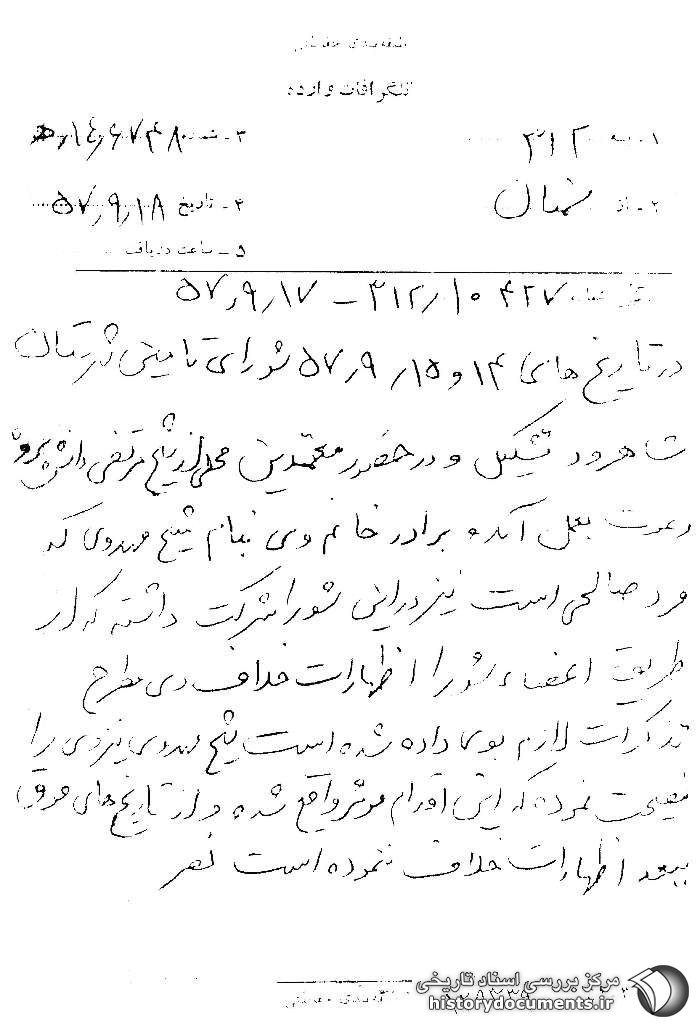 طبقه‌بندی حفاظتی
تلگرافات وارده
۱- به ۳۱۲
۳- شماره ۱۴۶۷۴۸
۲- از سمنان
۴- تاریخ ۵۷٫۹٫۱۸
۵- ساعت دریافت
۳۱۲٫۱۰۴۲۷ – ۵۷٫۹٫۱۷
در تاریخ های ۱۴ و ۱۵٫۹٫۵۷ شورای تامین شهرستان
شاهرود تشکیل و در حضور معتمدین محلی از شیخ مرتضی دانش پرور
دعوت بعمل آمده و برادر خانم وی بنام شیخ مهدوی که
مرد صالحی است نیز در این شورا شرکت داشته که از
طریق اعضاء شورا اظهارات خلاف وی مطرح
تذکرات لازم بوی داده شده است شیخ مهدوی نیز وی را
نصیحت نموده که این اقدام موثر واقع شده و از تاریخ های فوق
ببعد اظهارات خلاف ننموده است
طبقه‌بندی حفاظتی
مرکز بررسی اسناد تاریخی
historydocuments.ir